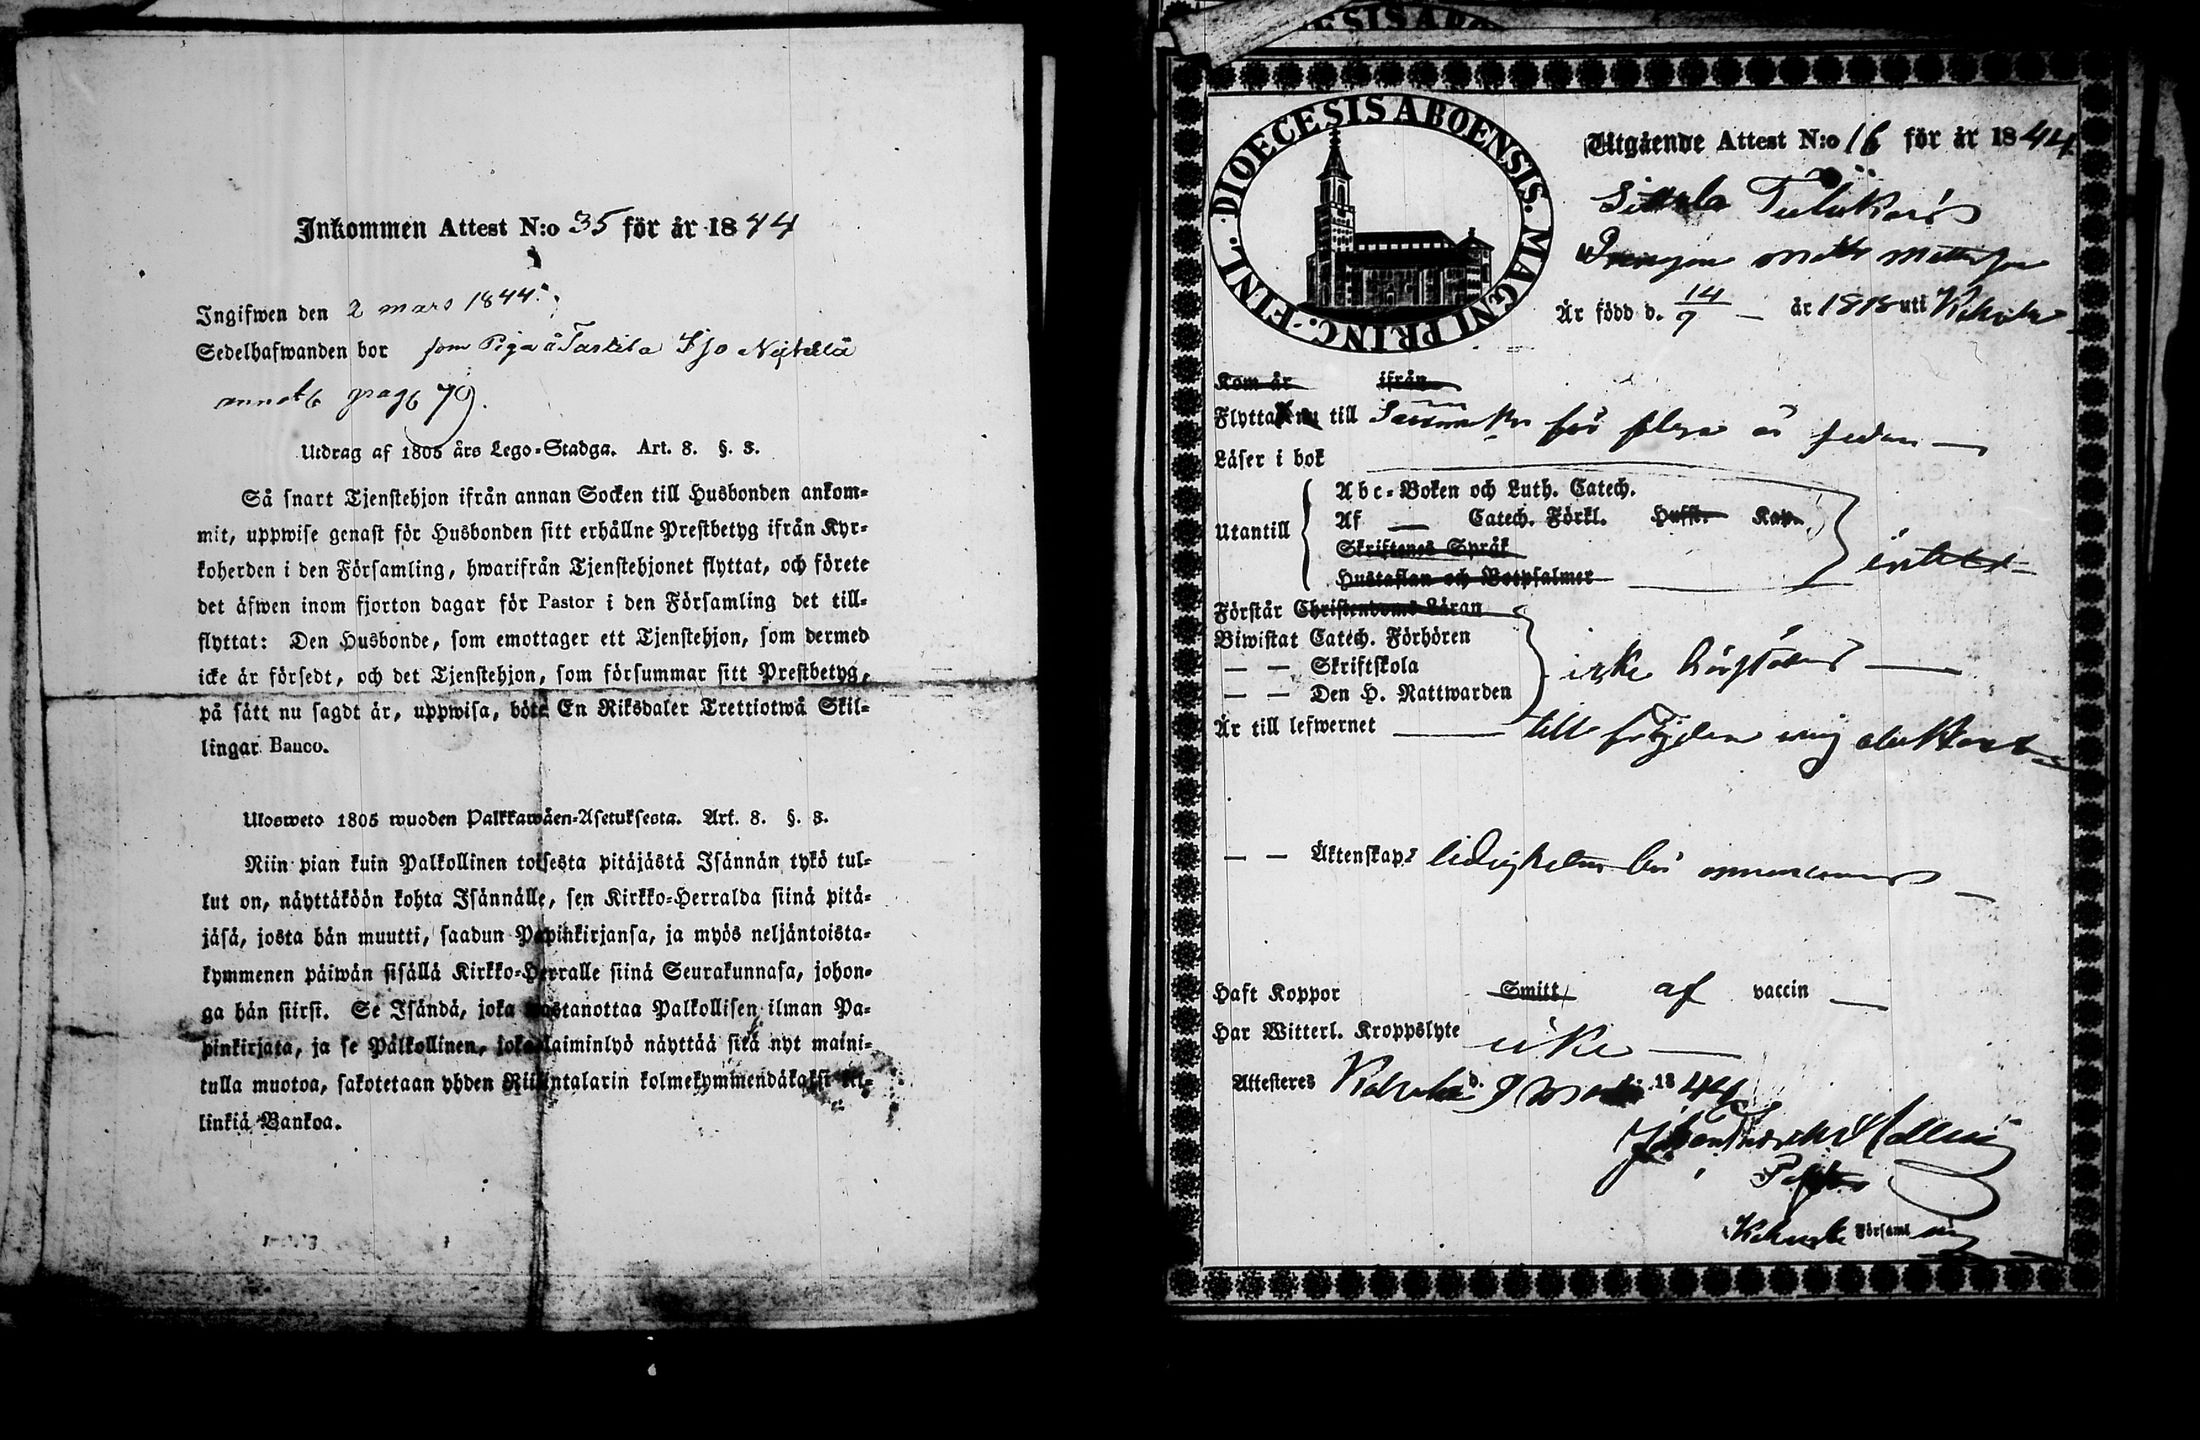 Inkommen Attest N:o 35 för år 1844
Ingifwen den 2 mars 1844.
Sedelhafwanden bor som Piga å
79
Utdrag af 1805 års Lego-Stadga. Art. 8. §. 3.
Så snart Tjenstehjon ifrån annan Socken till Husbonden ankom-
mit, uppwise genast för Husbonden sitt erhållne Prestbetyg ifrån Kyr-
koherden i den Församling, hwarifrån Tjenstehjonet flyttat, och förete
det äfwen inom fjorton dagar för Pastor i den Församling det till-
flyttat: Den Husbonde, som emottager ett Tjenstehjon, som dermed
icke är försedt, och det Tjenstehjon, som försummar sitt Prestbetyg,
på sätt nu sagdt är, uppwisa, böte En Riksdaler Trettiotwå Skil-
lingar Banco.
Ulosweto 1805 wuoden Palkkawäen-Asetuksesta. Art. 8. §. 3.
Niin pian kuin Palkollinen toisesta pitäjästä Isännän tykö tul-
lut on, näyttäköön kohta Isännälle, sen Kirkko-Herralda siinä pitä-
jäsä, josta hän muutti, saadun Papinkirjansa, ja myös neljäntoista-
kymmenen päiwän sisällä Kirkko-Herralle siinä Seurakunnasa, johon-
ga hän siirsi. Se Isändä, joka wastanottaa Palkollisen ilman Pa-
pinkirjata, ja se Palkollinen, joka laiminlyö näyttää sitä nyt maini-
tulla muotoa, sakotetaan yhden Riikintalarin kolmekymmendäkaksi kil-
linkiä Bankoa.
DIOECESIS ABOENSIS. MAGNI PRINC. FINL.
Utgående Attest N:o 16 för år 1844
Drengen Matts Mattsson
Är född d. 14/9 år 1818 uti
Kom år ifrån
Flyttar nu till för flere år sedan
Läser i bok
Utantill
Abc-Boken och Luth. Catech.
Af Catech. Förkl. Hufst. Kap.
Skriftenes Språk
Hustaflan och Botpsalmer
Förstår Christendoms Läran
Biwistat Catech. Förhören
— — Skriftskola
— — Den H. Nattwarden
icke
Är till lefwernet till följden mig obekant
— — Äktenskap: ledigheten bör
Haft Koppor Smitt af vaccin
Har Witterl. Kroppslyte icke
Attesteres d. 9 1844
Församl